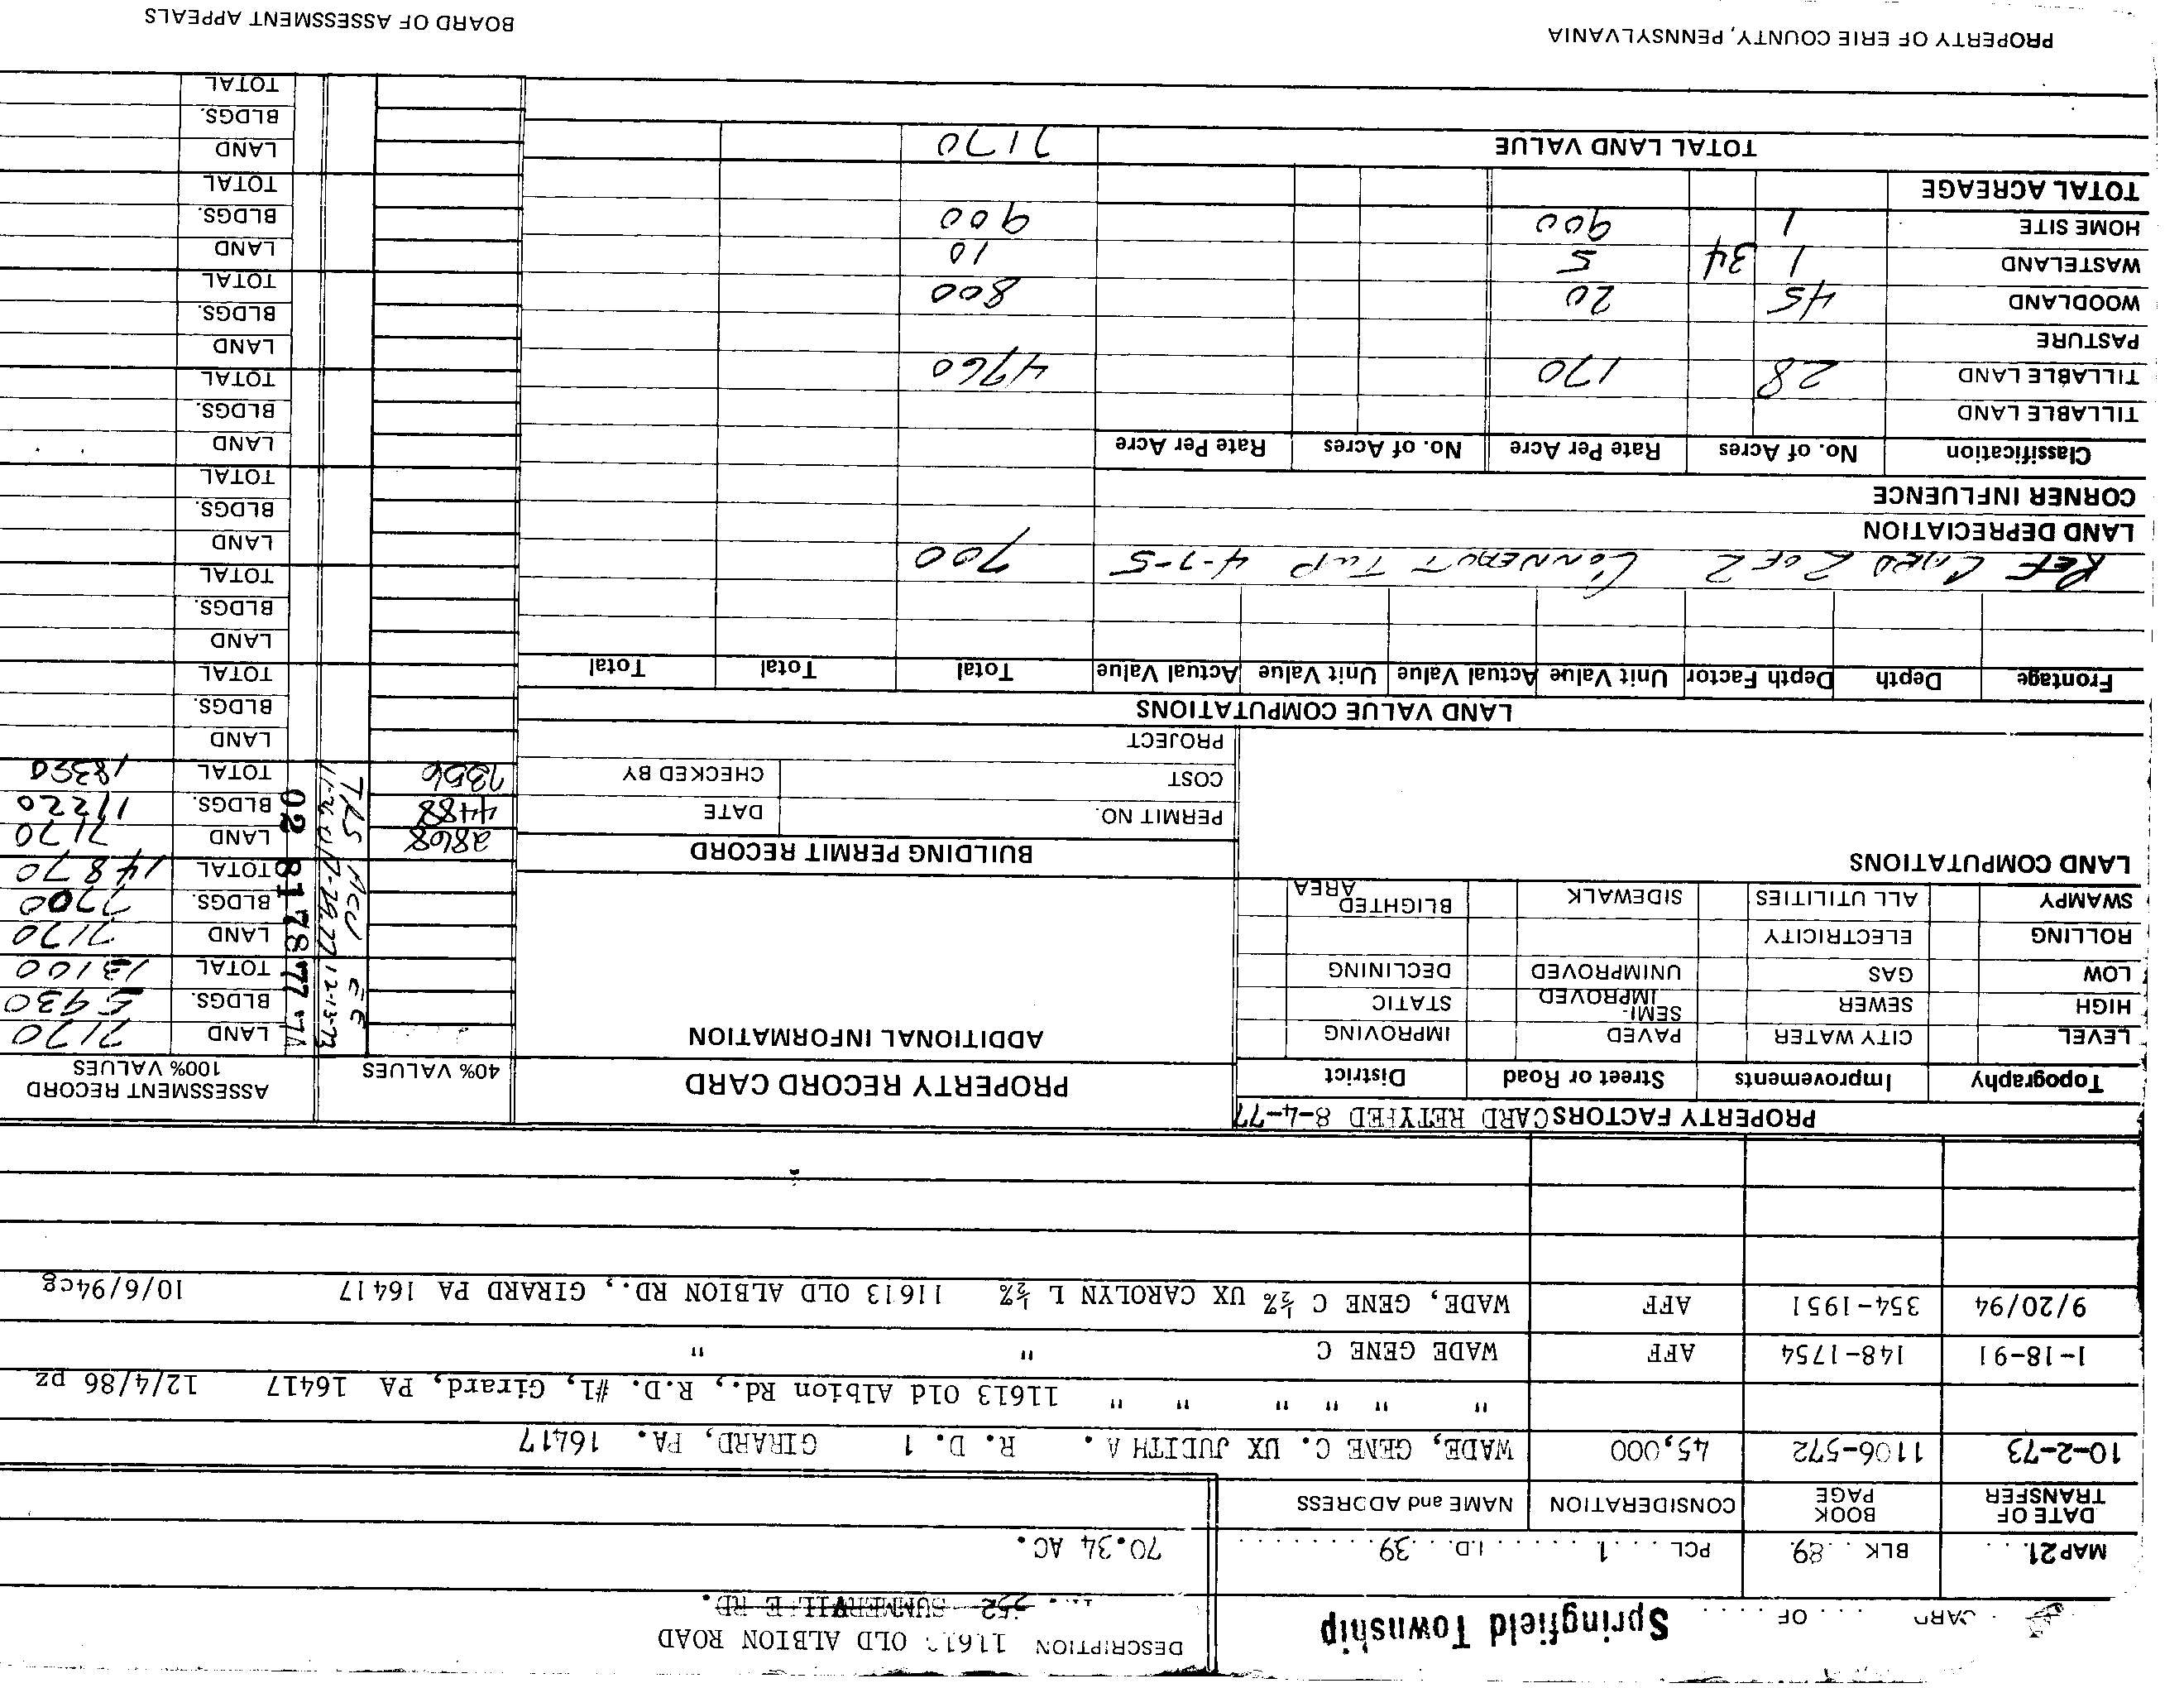 CARD . . . . OF . . . . Springfield Township
DESCRIPTION 11613 OLD ALBION ROAD
552 SUMMERVILLE RD.
MAP 21. . . BLK . . 89. PCL . . . 1 . . . . . . I.D. . . 39 . . . . . . . . .
70.34 AC.
DATE OF TRANSFER BOOK PAGE CONSIDERATION NAME and ADDRESS
10-2-73 1106-572 45,000 WADE, GENE C. UX JUDITH A. R. D. 1 GIRARD, PA. 16417
" " " " " " 11613 Old Albion Rd., R.D. #1, Girard, PA 16417 12/4/86 pz
1-18-91 148-1754 AFF WADE GENE C " "
9/20/94 354-1951 AFF WADE, GENE C ½% UX CAROLYN L ½% 11613 OLD ALBION RD., GIRARD PA 16417 10/6/94cg
PROPERTY FACTORS CARD RETYPED 8-4-77
Topography Improvements Street or Road District
LEVEL CITY WATER PAVED IMPROVING
HIGH SEWER SEMI-IMPROVED STATIC
LOW GAS UNIMPROVED DECLINING
ROLLING ELECTRICITY
SWAMPY ALL UTILITIES SIDEWALK BLIGHTED AREA
LAND COMPUTATIONS
PROPERTY RECORD CARD
ADDITIONAL INFORMATION
BUILDING PERMIT RECORD
PERMIT NO. DATE
COST CHECKED BY
PROJECT
40% VALUES
2868
4488
7356
ASSESSMENT RECORD
100% VALUES
LAND 7170
BLDGS. 5930
TOTAL 13100
LAND 7170
BLDGS. 7700
TOTAL 14870
LAND 7170
BLDGS. 11220
TOTAL 18390
LAND
BLDGS.
TOTAL
LAND
BLDGS.
TOTAL
LAND
BLDGS.
TOTAL
LAND
BLDGS.
TOTAL
LAND
BLDGS.
TOTAL
LAND
BLDGS.
TOTAL
LAND
BLDGS.
TOTAL
12-13-73
LAND VALUE COMPUTATIONS
Frontage Depth Depth Factor Unit Value Actual Value Unit Value Actual Value Total Total Total
REF CARD 2 OF 2 CONNEAUT TWP 4-7-5 700
LAND DEPRECIATION
CORNER INFLUENCE
Classification No. of Acres Rate Per Acre No. of Acres Rate Per Acre
TILLABLE LAND
TILLABLE LAND 28 170 4760
PASTURE
WOODLAND 45 20 800
WASTELAND 1 34 5 10
HOME SITE 1 900 900
TOTAL ACREAGE
TOTAL LAND VALUE 7170
PROPERTY OF ERIE COUNTY, PENNSYLVANIA BOARD OF ASSESSMENT APPEALS